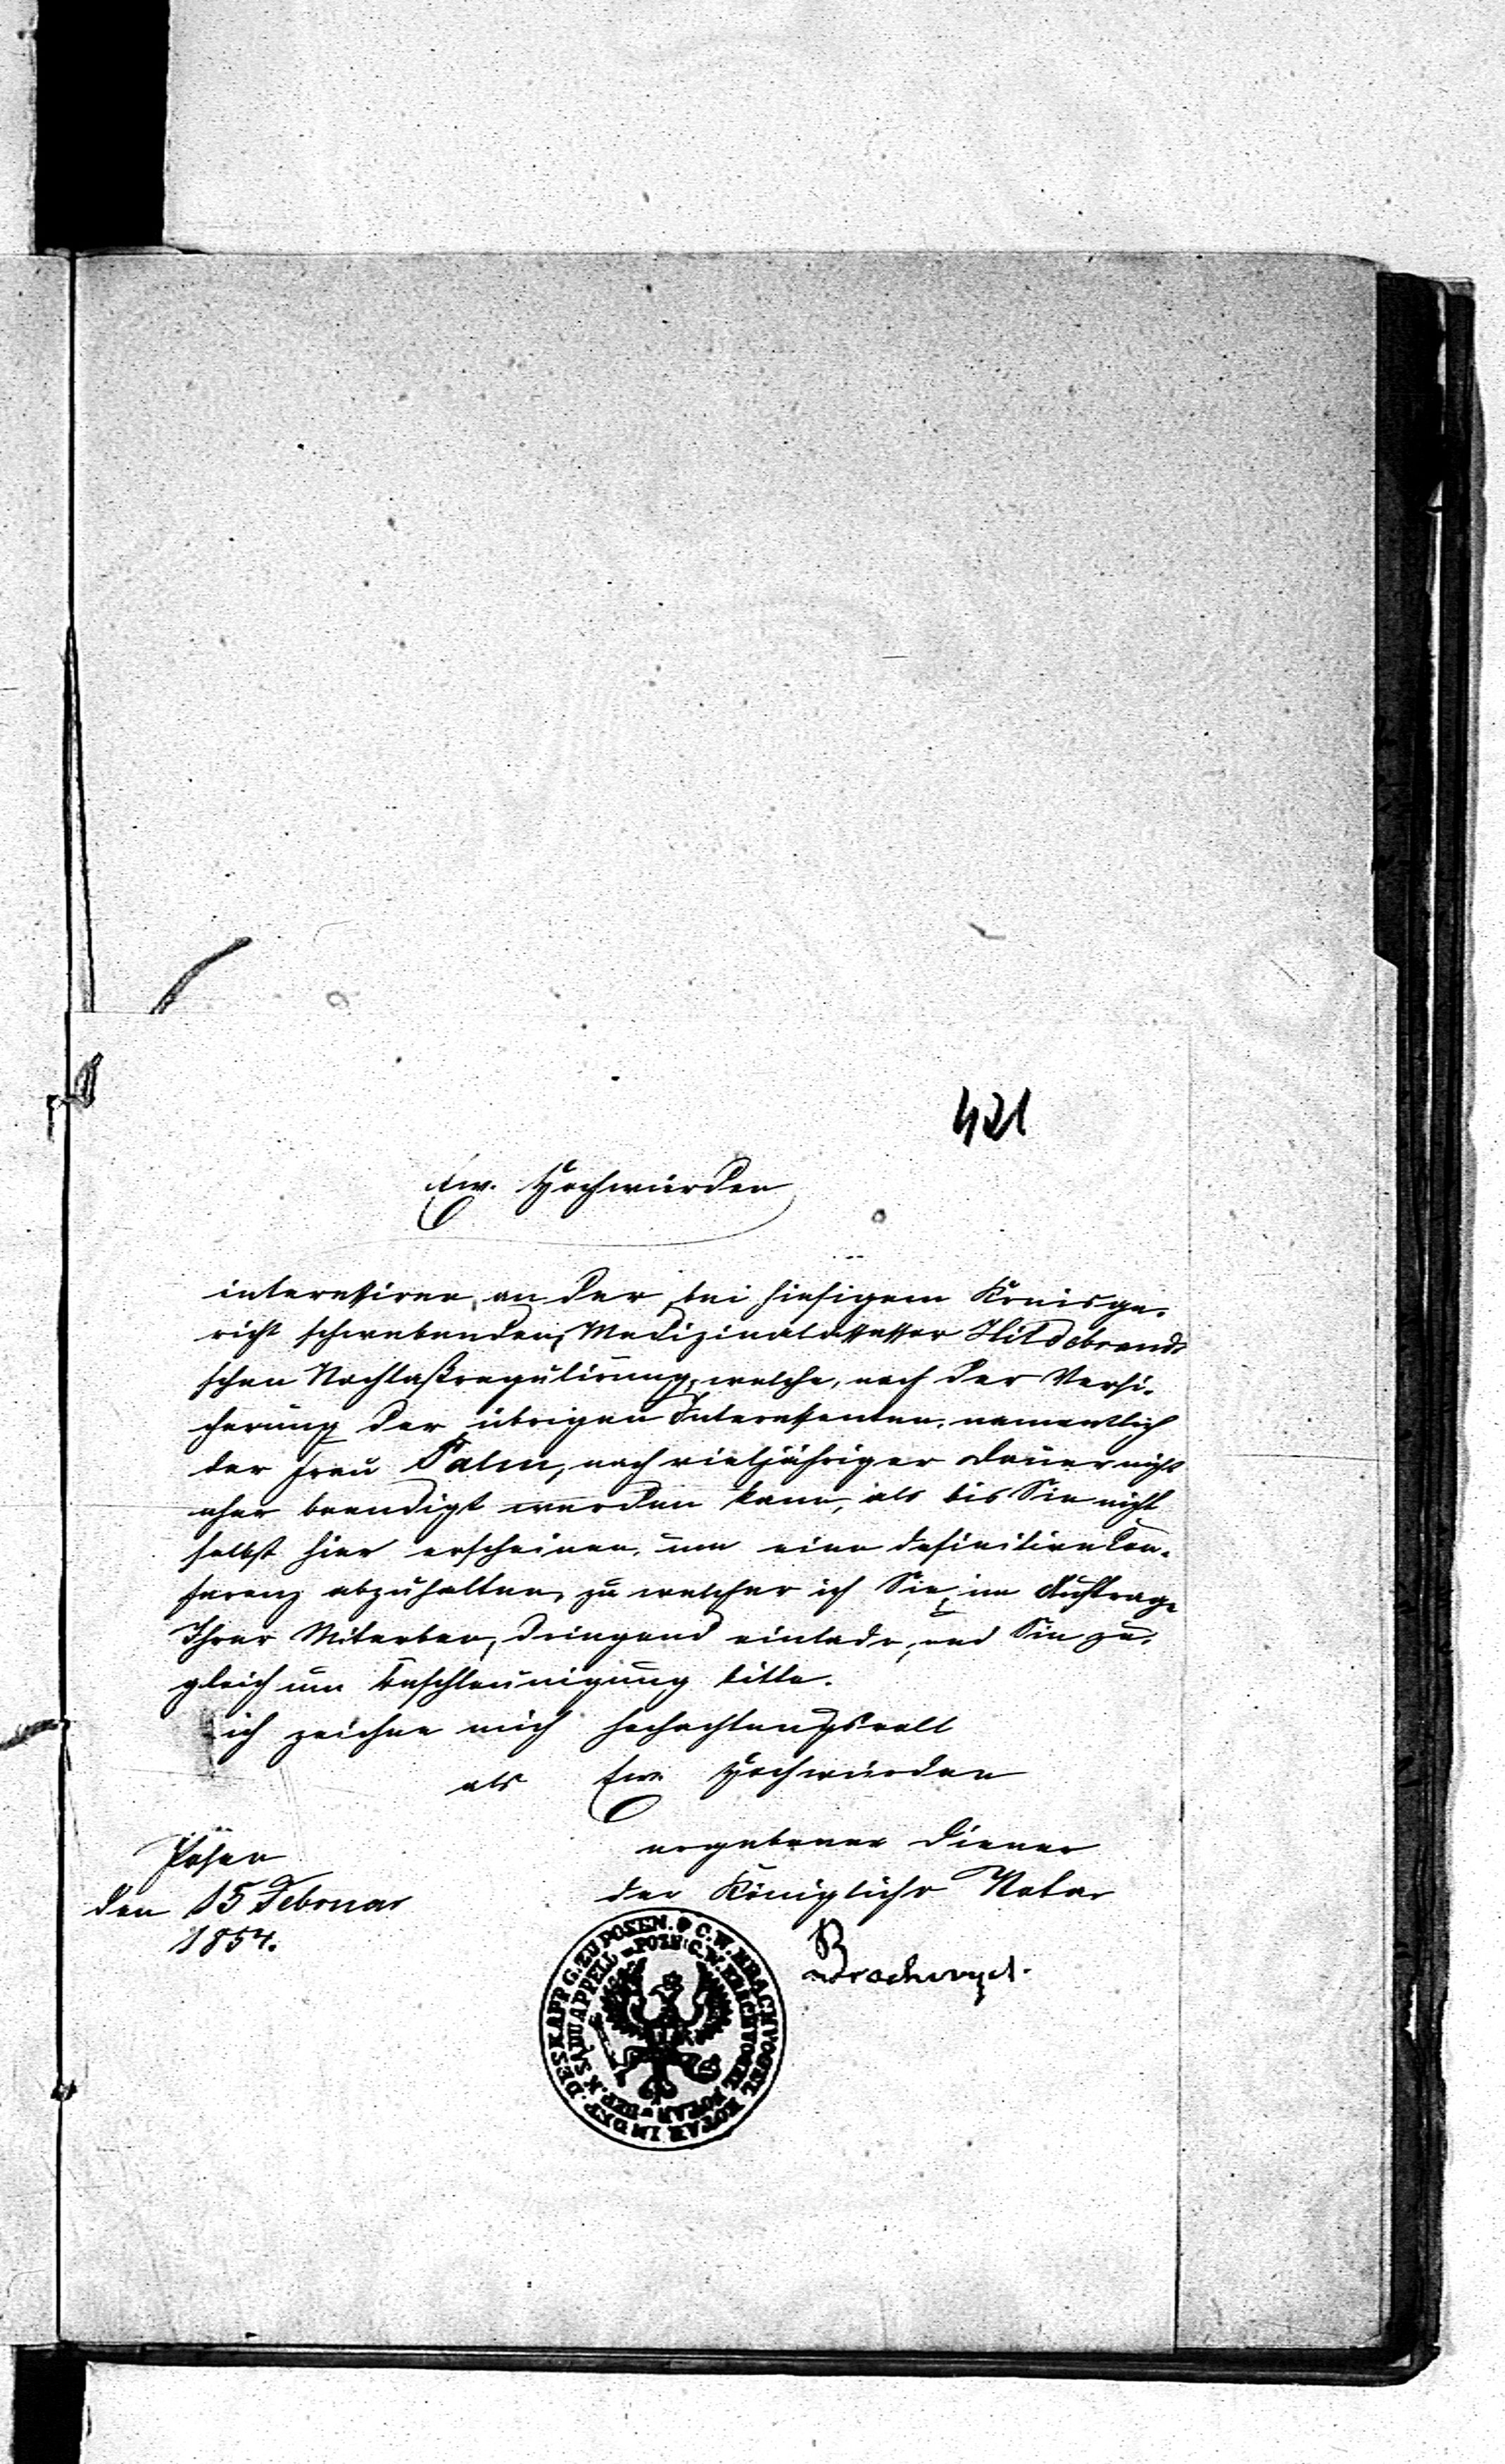 421
Ew. Hochwürden
interessiren an der bei hiesigem Kreisge-
richt schwebenden, Medizinalassessor Hildebrandt
schen Nachlaßregulirung, welche, nach der Versi-
cherung der übrigen Interessenten, namentlich
der Frau Palm, nach vieljähriger Dauer nicht
eher beendigt werden kann, als bis Sie nicht
selbst hier erscheinen, um eine definitive Con-
ferenz abzuhalten, zu welcher ich Sie, im Auftrage
Ihrer Miterben, dringend einlade, und Sie zu-
gleich um Beschleunigung bitte.
ich zeichne mich hochachtungsvoll
als Ew. Hochwürden
ergebener Diener
der Königliche Notar
Brachvogel.
Posen
den 15 Februar
1854.
C. W. BRACHVOGEL NOTAR IM DEP. DES K APP G. ZU POSEN.